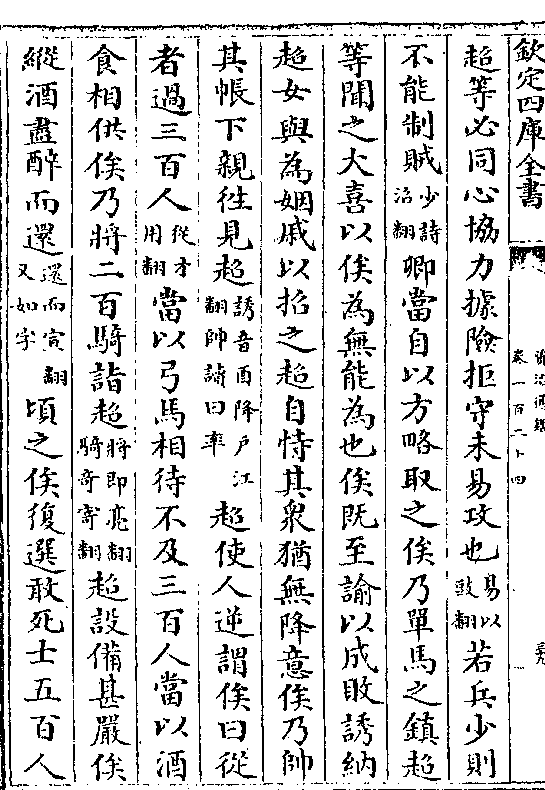 欽定四庫全書
資治通鑑
卷一百二十四
超等必同心協力據險拒守未易攻也易以豉翻若兵少則
不能制賊少詩沼翻卿當自以方略取之俟乃單馬之鎮超
等聞之大喜以俟為無能為也俟既至諭以成敗誘納
超女與為姻戚以招之超自恃其衆猶無降意俟乃帥
其帳下親往見超誘音酉降户江翻帥讀曰率超使人逆謂俟曰從
者過三百人從才用翻當以弓馬相待不及三百人當以酒
食相供俟乃將二百騎詣超將即亮翻騎奇寄翻超設備甚嚴俟
縱酒盡醉而還還而宣翻又如字頃之俟復選敢死士五百人